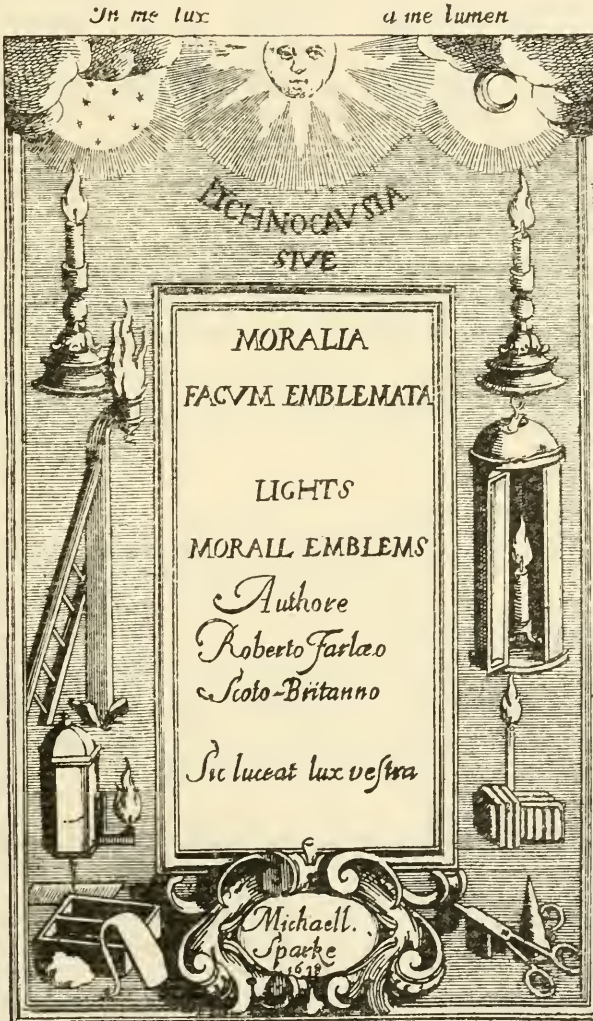 In me lux a me lumen
LYCHNOCAVSIA
SIVE
MORALIA
FACVM EMBLEMATA
LIGHTS
MORALL EMBLEMS
Authore
Roberto Farlæo
Scoto-Britanno
Sic luceat lux vestra
Michaell.
Sparke
1638